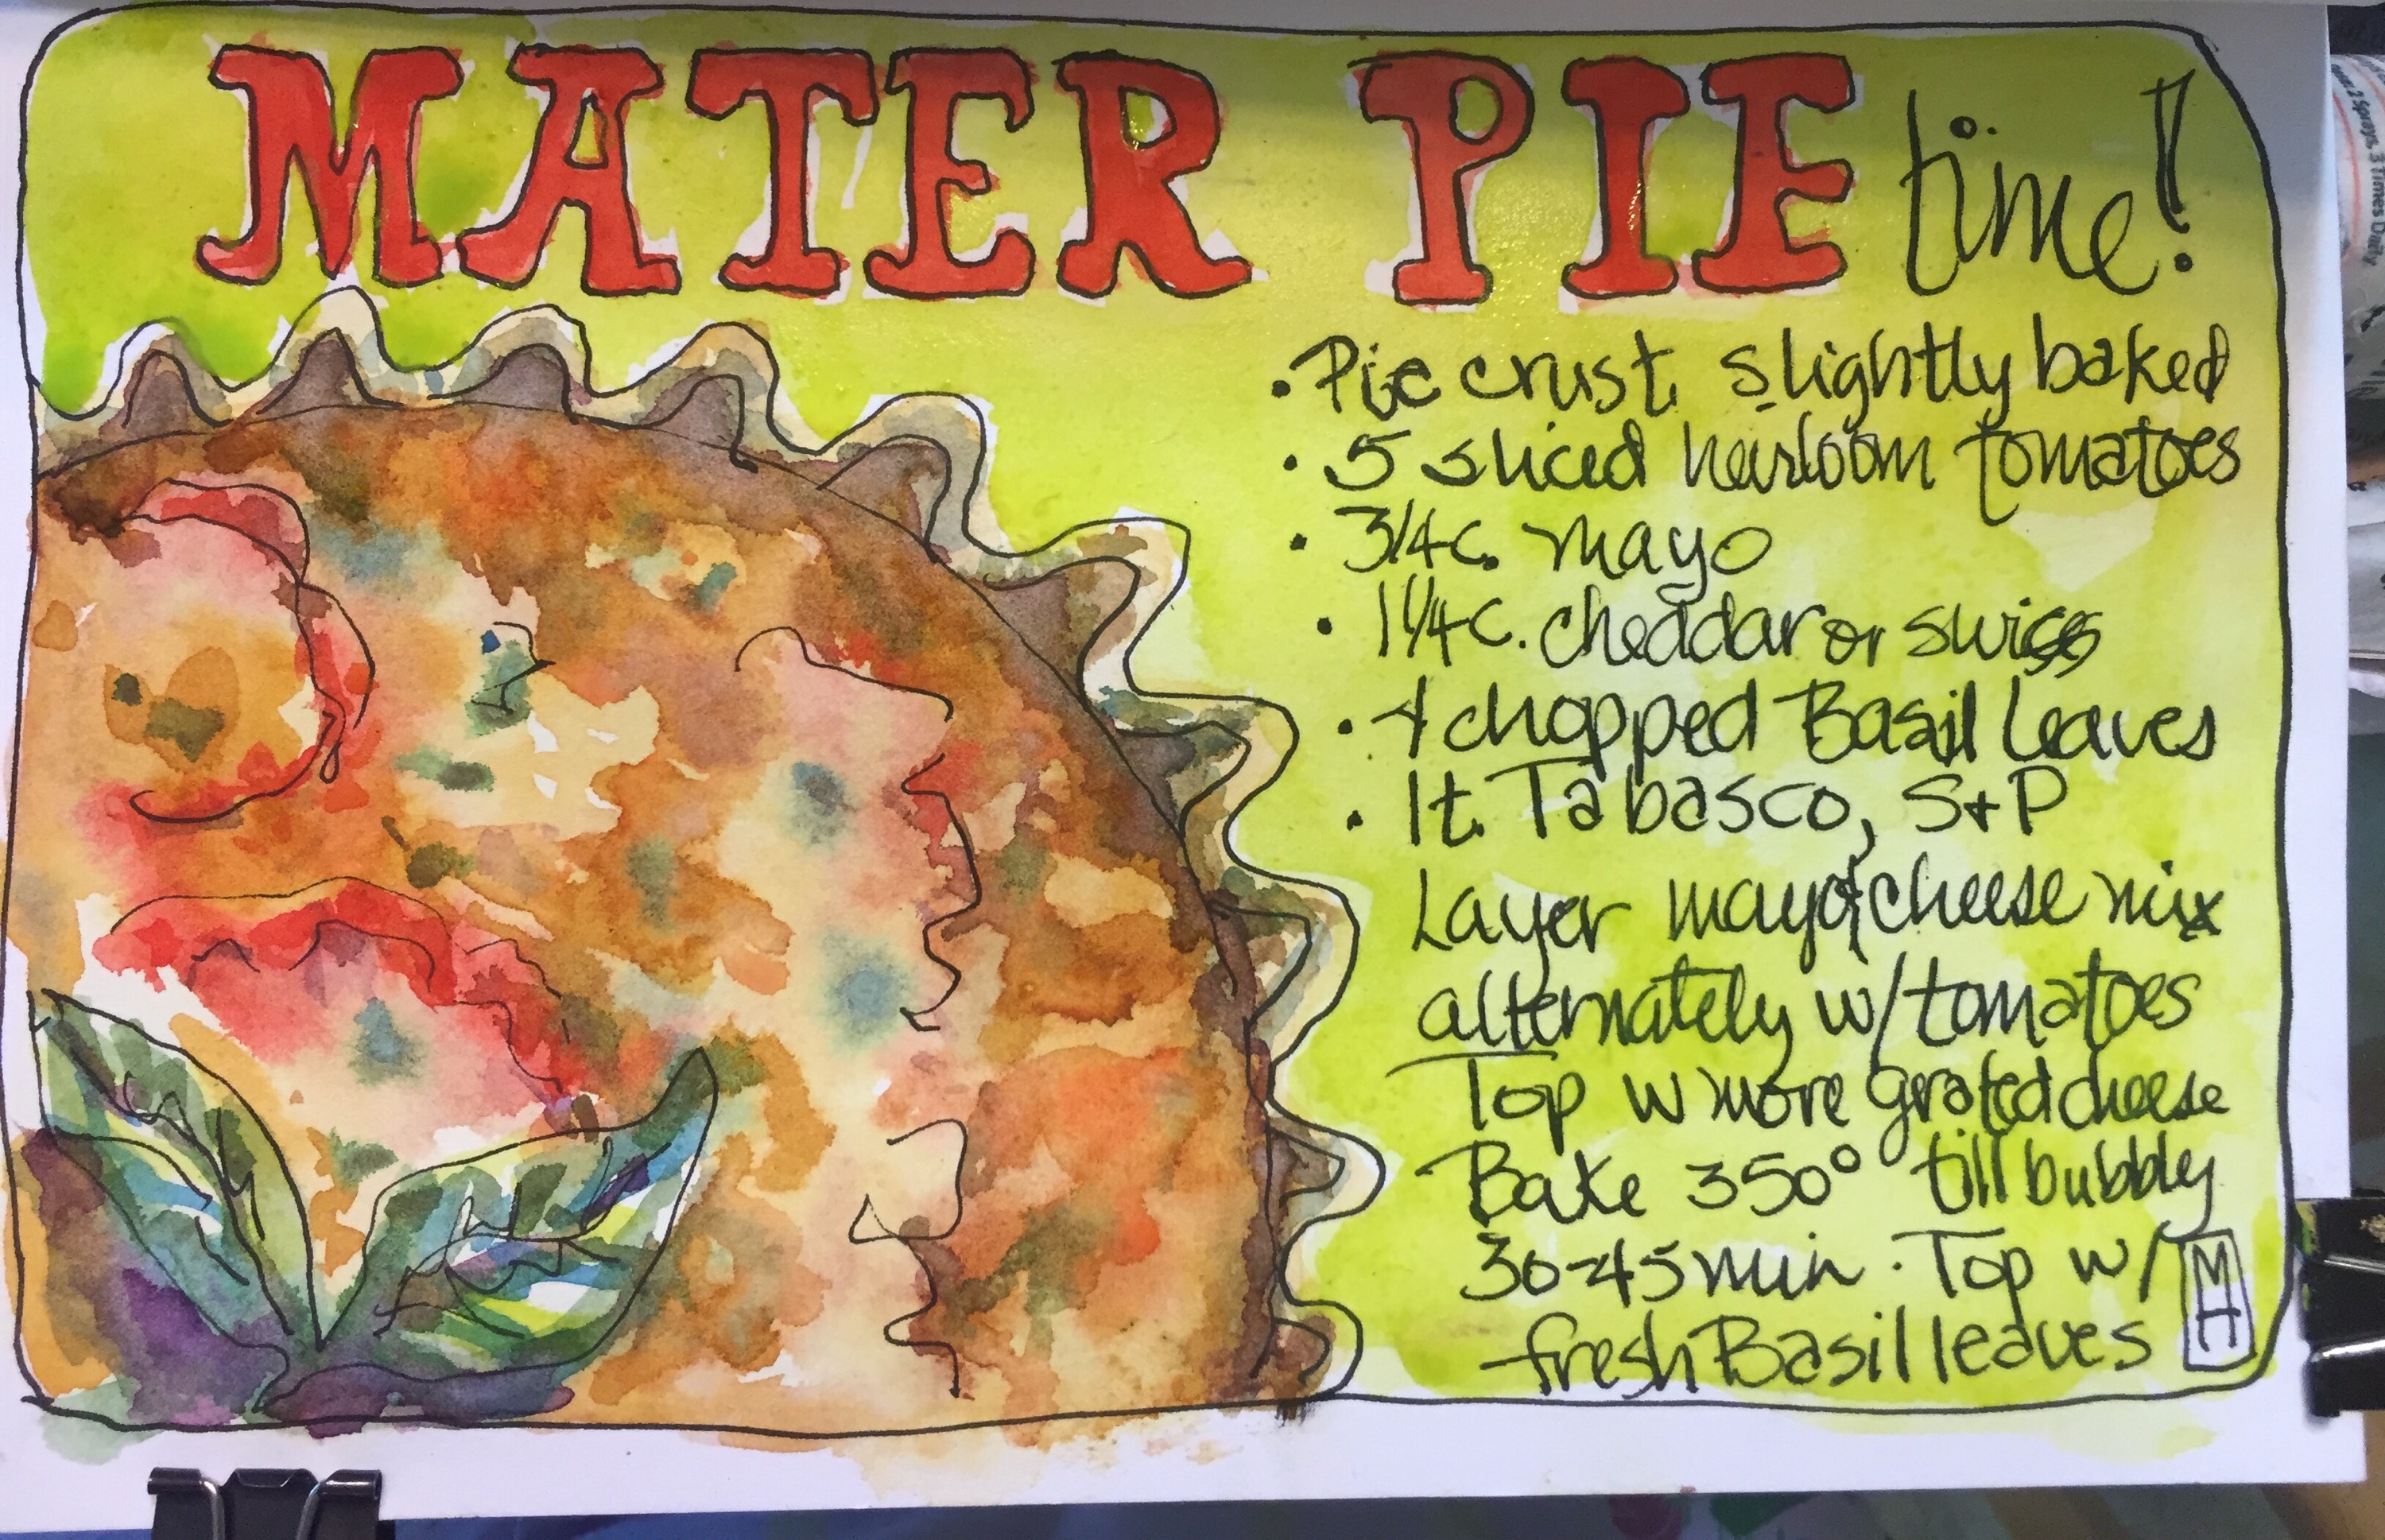 MATER PIE time!!
• Pie crust, slightly baked
• 5 sliced heirloom tomatoes
• 3/4 c. mayo
• 1 1/4 c. cheddar or swiss
• 4 chopped Basil Leaves
• 1 t. Tabasco, S+P
Layer mayo & cheese mix
alternately w/ tomatoes
Top w more grated cheese
Bake 350° till bubbly
30-45 min. Top w/
fresh Basil leaves
MH
3 Times Daily